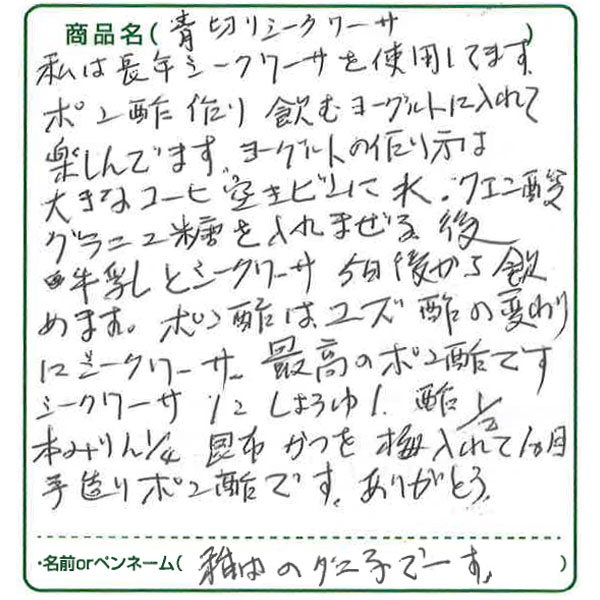 商品名( 青切りシークワーサ )
私は長年シークワーサを使用してます。
ポン酢作り 飲むヨーグルトに入れて
楽しんでます。ヨーグルトの作り方は
大きなコーヒ空きビンに水、クエン酸
グラニュ糖を入れまぜる 後
牛乳しとシークワーサ 5日後から飲
めます。ポン酢はユズ酢の変わり
にシークワーサ 最高のポン酢です
シークワーサ 1/2 しょうゆ1. 酢1/2
本みりん1/4 昆布 かつを 梅入れて1ヶ月
手造りポン酢です。ありがとう。
・名前orペンネーム( 稚内のダニ子でーす。 )